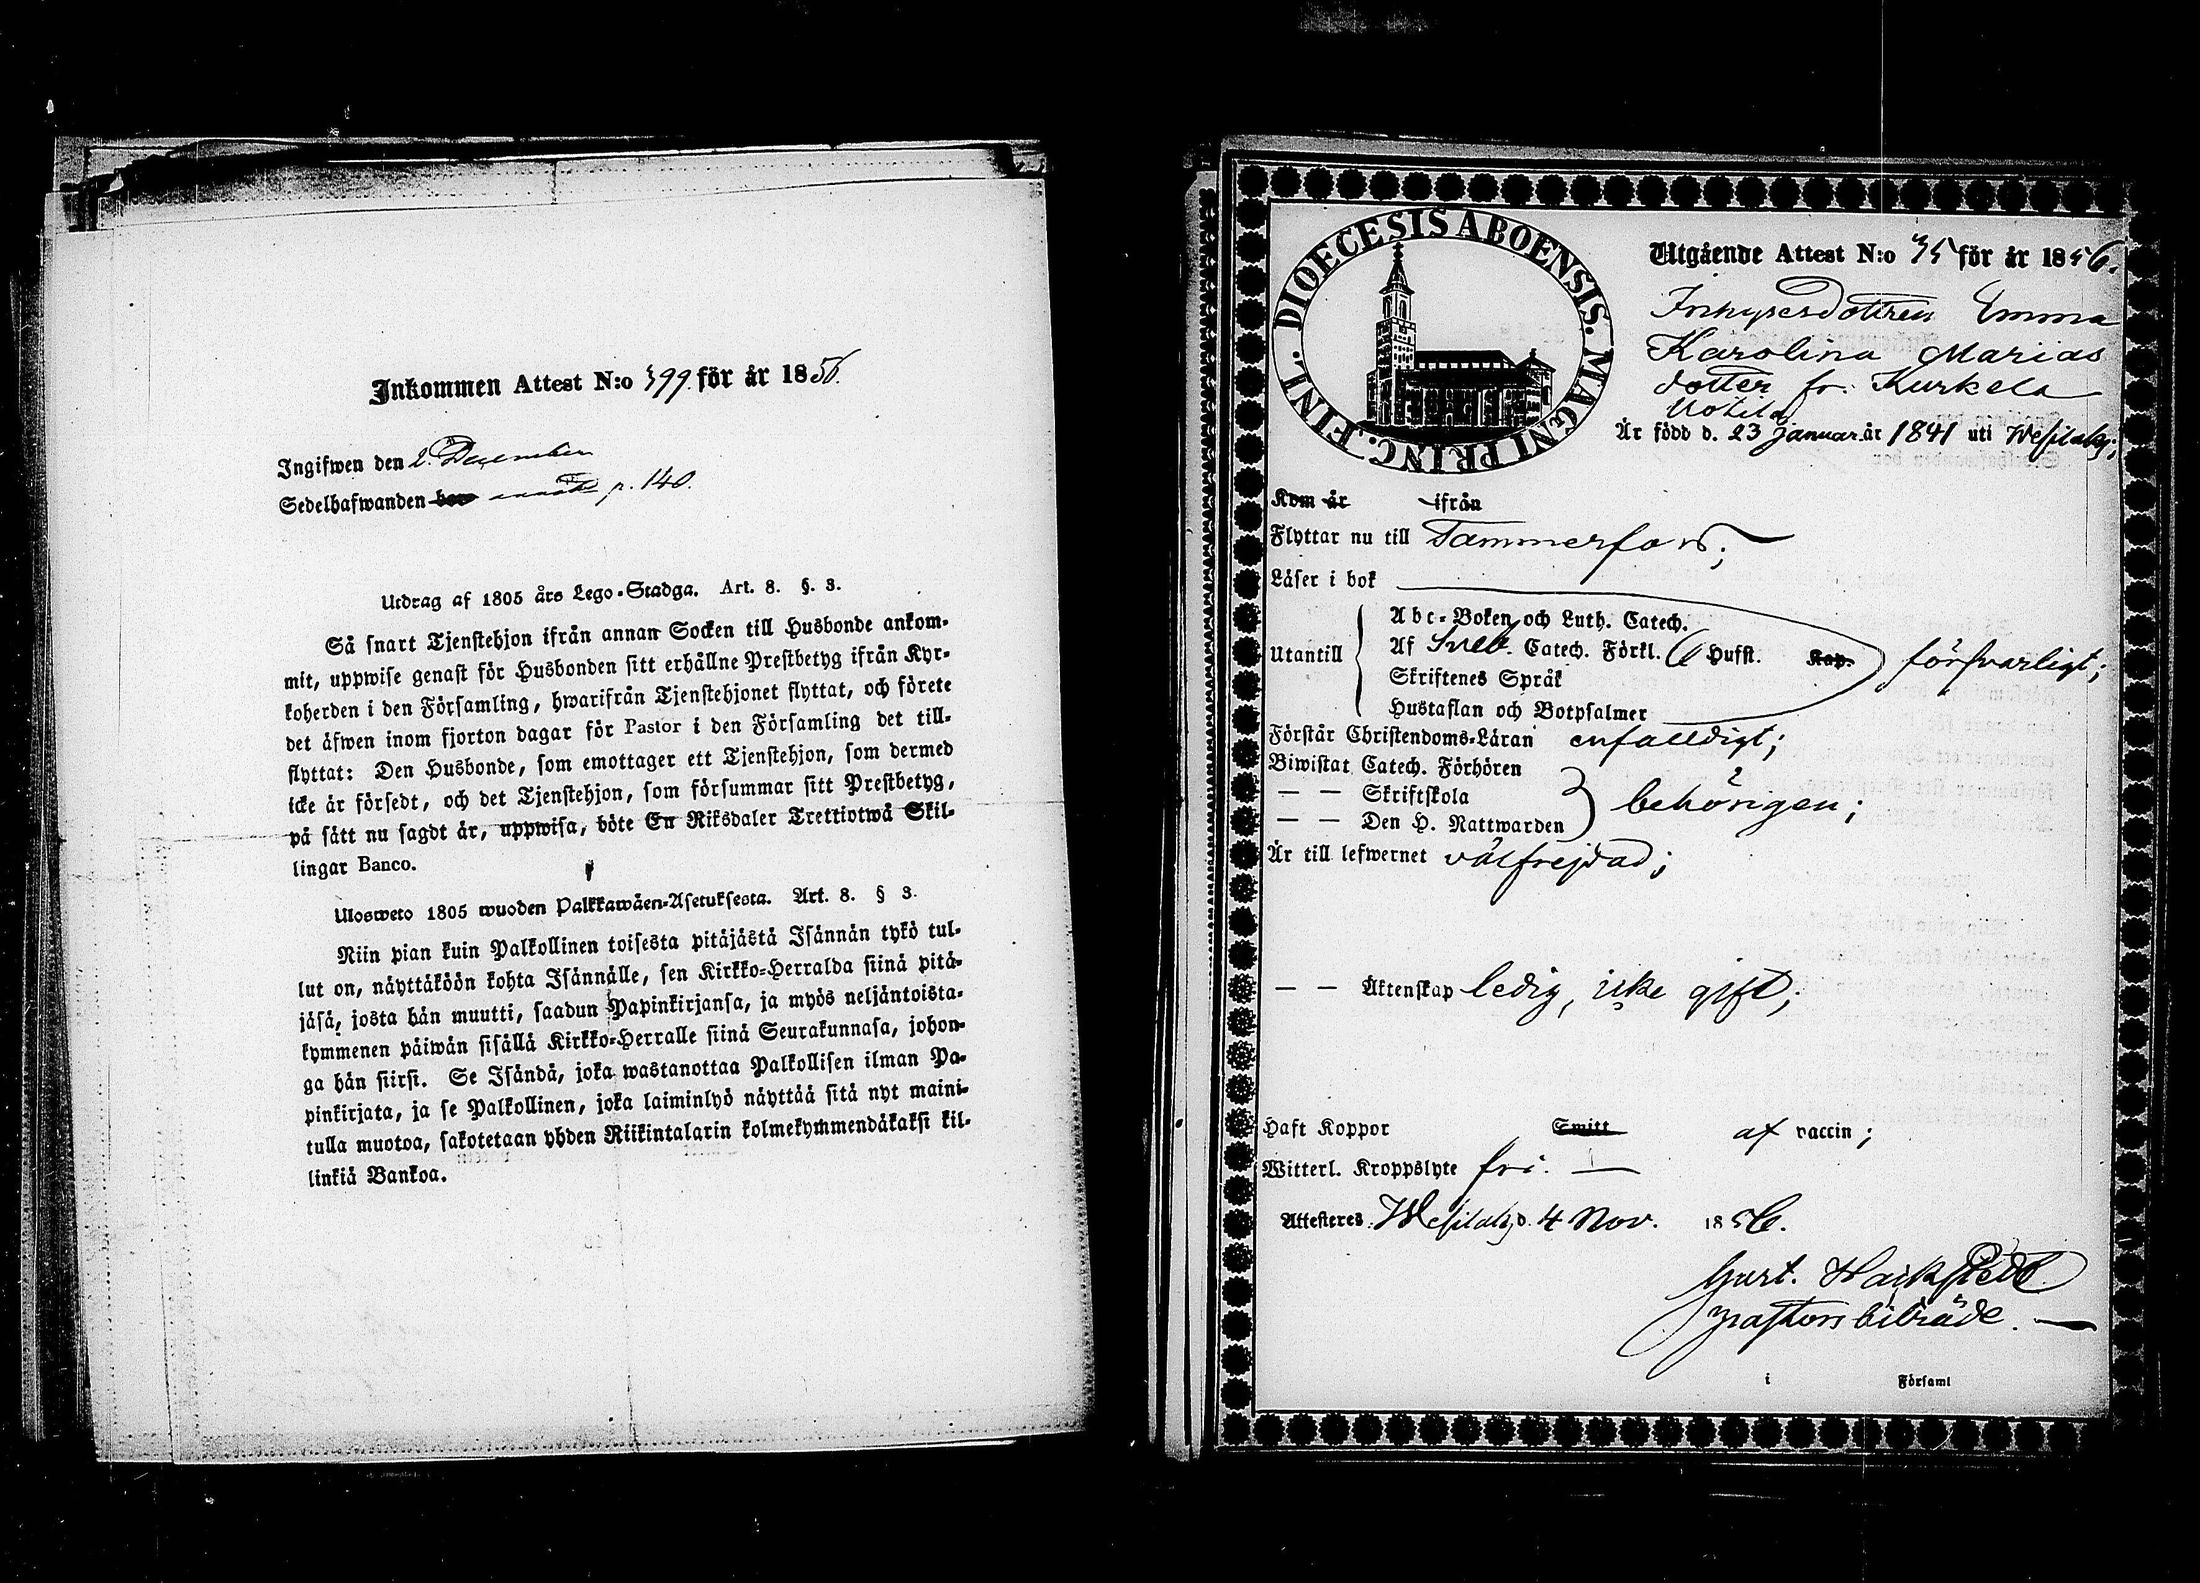 Inkommen Attest N:o 399. för år 1856.
Ingifwen den 2. December
Sedelhafwanden p. 140.
Utdrag af 1805 års Lego-Stadga. Art. 8. §. 3.
Så snart Tjenstehjon ifrån annan Socken till Husbonde ankom-
mit, uppwise genast för Husbonden sitt erhållne Prestbetyg ifrån Kyr-
koherden i den Församling, hwarifrån Tjenstehjonet flyttat, och förete
det äfwen inom fjorton dagar för Pastor i den Församling det till-
flyttat: Den Husbonde, som emottager ett Tjenstehjon, som dermed
icke är försedt, och det Tjenstehjon, som försummar sitt Prestbetyg,
på sätt nu sagdt är, uppwisa, böte En Riksdaler Trettiotwå Skil-
lingar Banco.
Ulosweto 1805 wuoden Palkkawäen-Asetuksesta. Art. 8. § 3.
Niin pian kuin Palkollinen toisesta pitäjästä Isännän tykö tul-
lut on, näyttäköön kohta Isännälle, sen Kirkko-Herralda siinä pitä-
jäsä, josta hän muutti, saadun Papinkirjansa, ja myös neljäntoista-
kymmenen päiwän sisällä Kirkko-Herralle siinä Seurakunnasa, johon-
ga hän siirsi. Se Isändä, joka wastanottaa Palkollisen ilman Pa-
pinkirjata, ja se Palkollinen, joka laiminlyö näyttää sitä nyt maini-
tulla muotoa, sakotetaan yhden Riikintalarin kolmekymmendäkaksi kil-
linkiä Bankoa.
DIOECESIS ABOENSIS. MAGNI PRINC. FINL.
Utgående Attest N:o 35 för år 1856.
Inhysesdottren Emma
Karolina Marias
dotter fr. Kurkela
Uotila
Är född d. 23 Januar. år 1841 uti Wesilaks;
Kom år ifrån
Flyttar nu till Tammerfors;
Läser i bok
Abc-Boken och Luth. Catech.
Utantill Af Sveb. Catech. Förkl. 6 Hufst. Kap. försvarligt;
Skriftenes Språk
Hustaflan och Botpsalmer
Förstår Christendoms-Läran enfalldigt;
Biwistat Catech. Förhören
— — Skriftskola behörigen;
— — Den H. Nattwarden
Är till lefwernet välfrejdad;
— — Äktenskap ledig, icke gift;
Haft Koppor Smitt af vaccin;
Witterl. Kroppslyte fri. —
Attesteres: Wesilaks d. 4 Nov. 1856.
Gust. Hackstedt
pastors biträde. —
i Församl